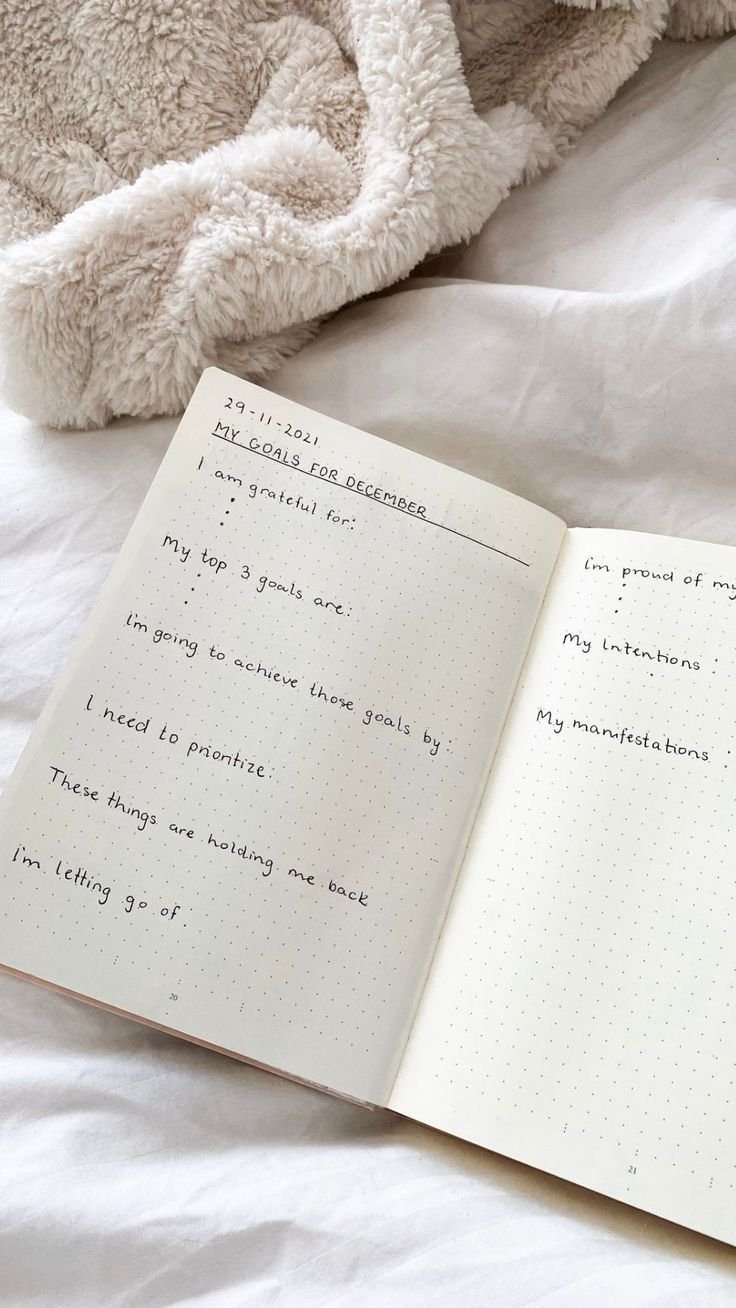 29-11-2021
MY GOALS FOR DECEMBER
I am grateful for:
My top 3 goals are:
I'm going to achieve those goals by:
I need to prioritize:
These things are holding me back
I'm letting go of
20
i'm proud of my
My Intentions :
My manifestations :
21